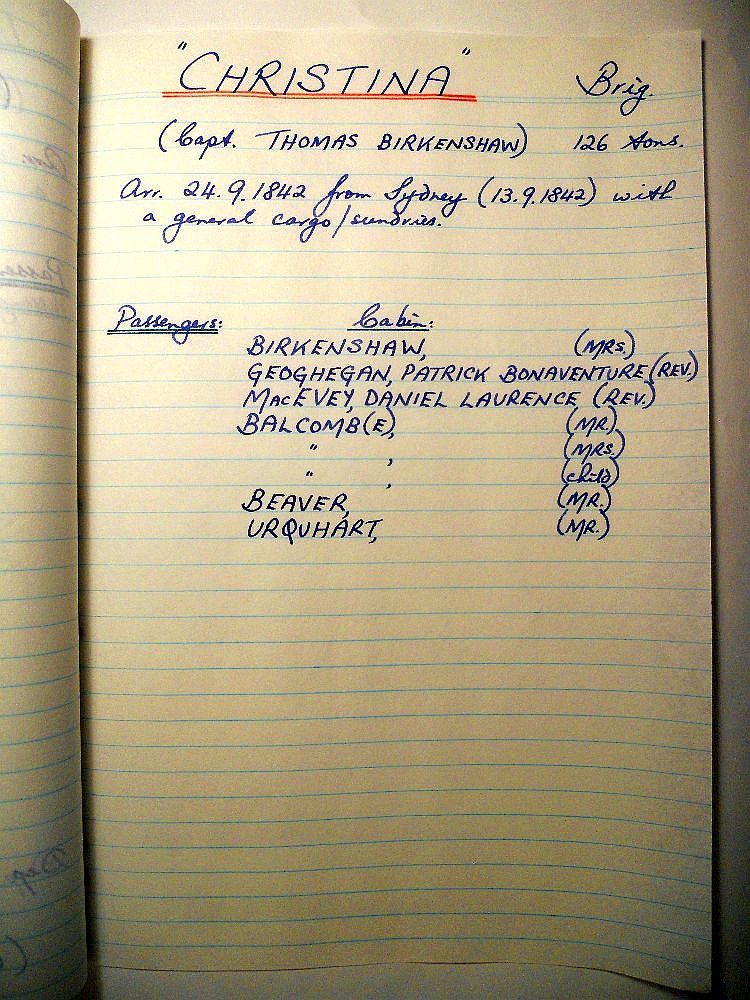 "CHRISTINA" Brig.
(Capt. THOMAS BIRKENSHAW) 126 tons.
Arr. 24.9.1842 from Sydney (13.9.1842) with
a general cargo/sundries.
Passengers: Cabin:
BIRKENSHAW, (MRS.)
GEOGHEGAN, PATRICK BONAVENTURE (REV.)
MacEVEY, DANIEL LAURENCE (REV.)
BALCOMB(E), (MR.)
" , (MRS.)
" , (child)
BEAVER, (MR.)
URQUHART, (MR.)
Dep